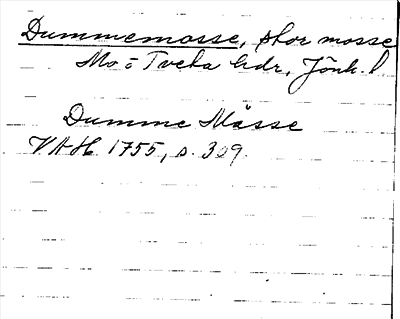 Dummemosse, stor mosse
Mo o Tveta hdr, Jönk. l.
Dumme Måsse
VAH 1755, s. 309.